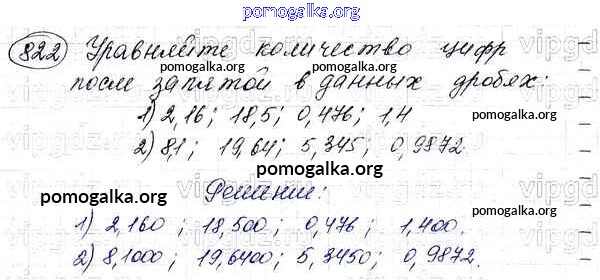 pomogalka.org
822 Уравняйте количество цифр
pomogalka.org
после запятой в данных дробях:
1) 2,16; 18,5; 0,476; 1,4
pomogalka.org
2) 8,1; 19,64; 5,345; 0,9872.
pomogalka.org
Решение:
pomogalka.org
1) 2,160; 18,500; 0,476; 1,400.
2) 8,1000; 19,6400; 5,3450; 0,9872.
pomogalka.org